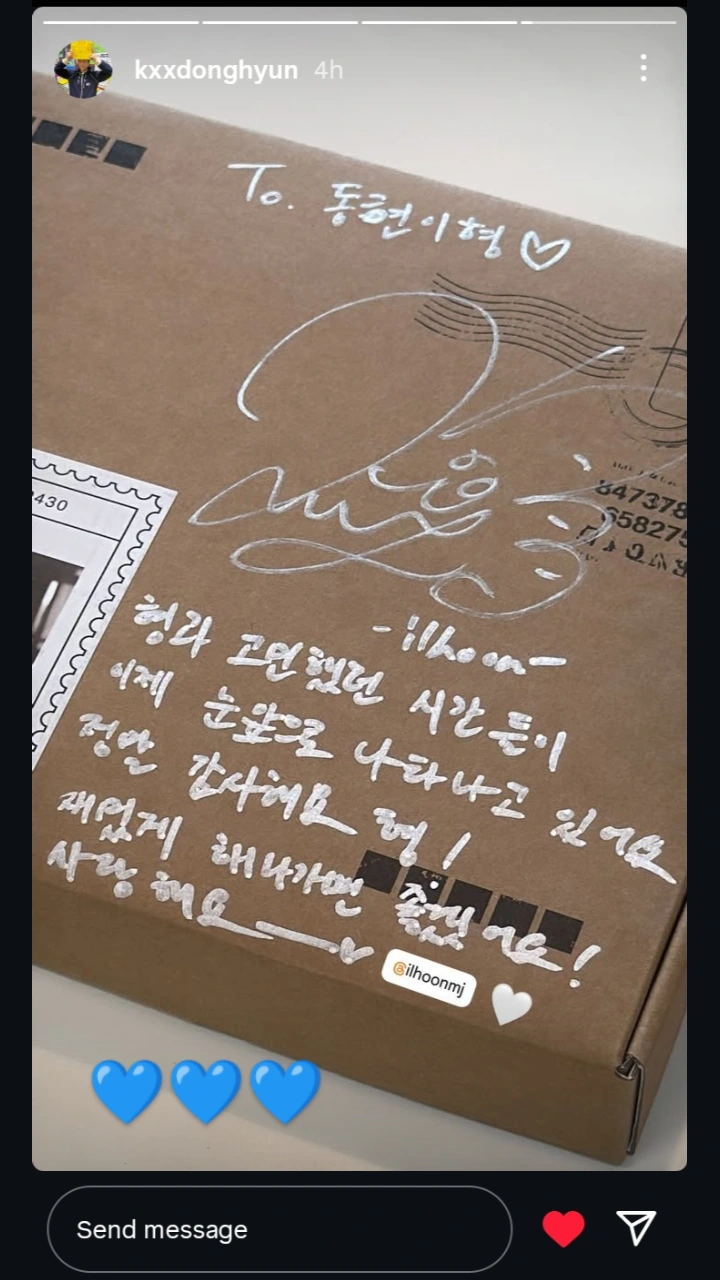 kxxdonghyun 4h
To. 동현이형♡
430
847378
658275
-ilhoon-
형과 고민했던 시간들이
이제 눈앞으로 나타나고 있어요
정말 감사해요 형!
재밌게 해나가면 좋겠어요!
사랑해요
@ilhoonmj
Send message